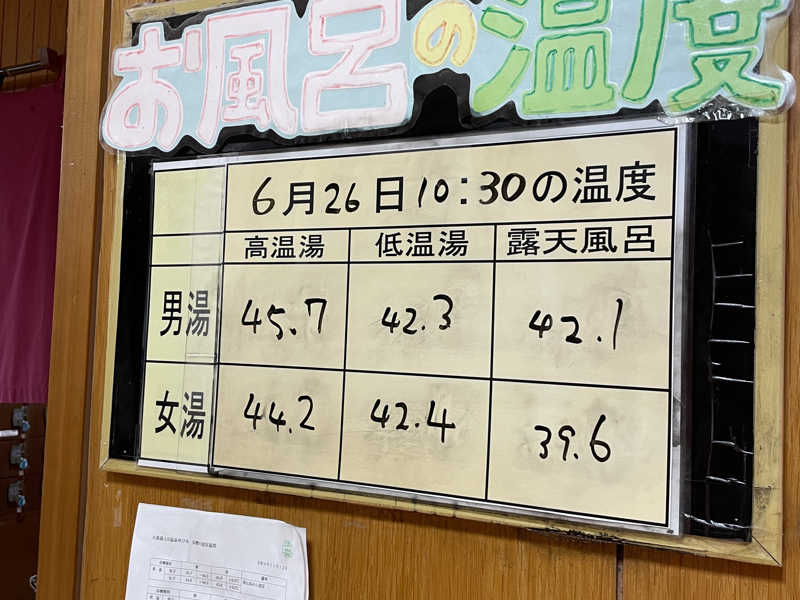 お風呂の温度
6月26日10:30の温度
高温湯 低温湯 露天風呂
男湯 45.7 42.3 42.1
女湯 44.2 42.4 39.6